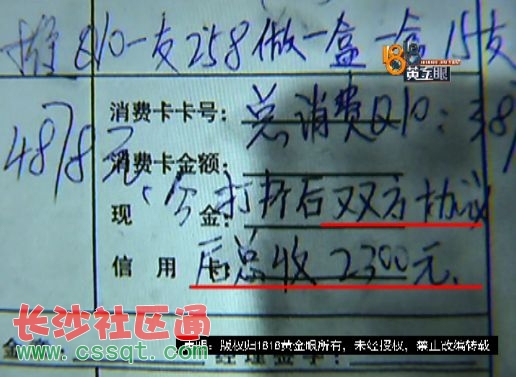 增Q10一支258做一盒一盒15支
18
黄金眼
消费卡卡号：总消费Q10：387
4878元
消费卡金额：
现 金：今打折后双方协议
信用卡：后总收2300元.
长沙社区通
www.cssqt.com
声明：版权归1818黄金眼所有，未经授权，禁止改编转载
金
经理签字：